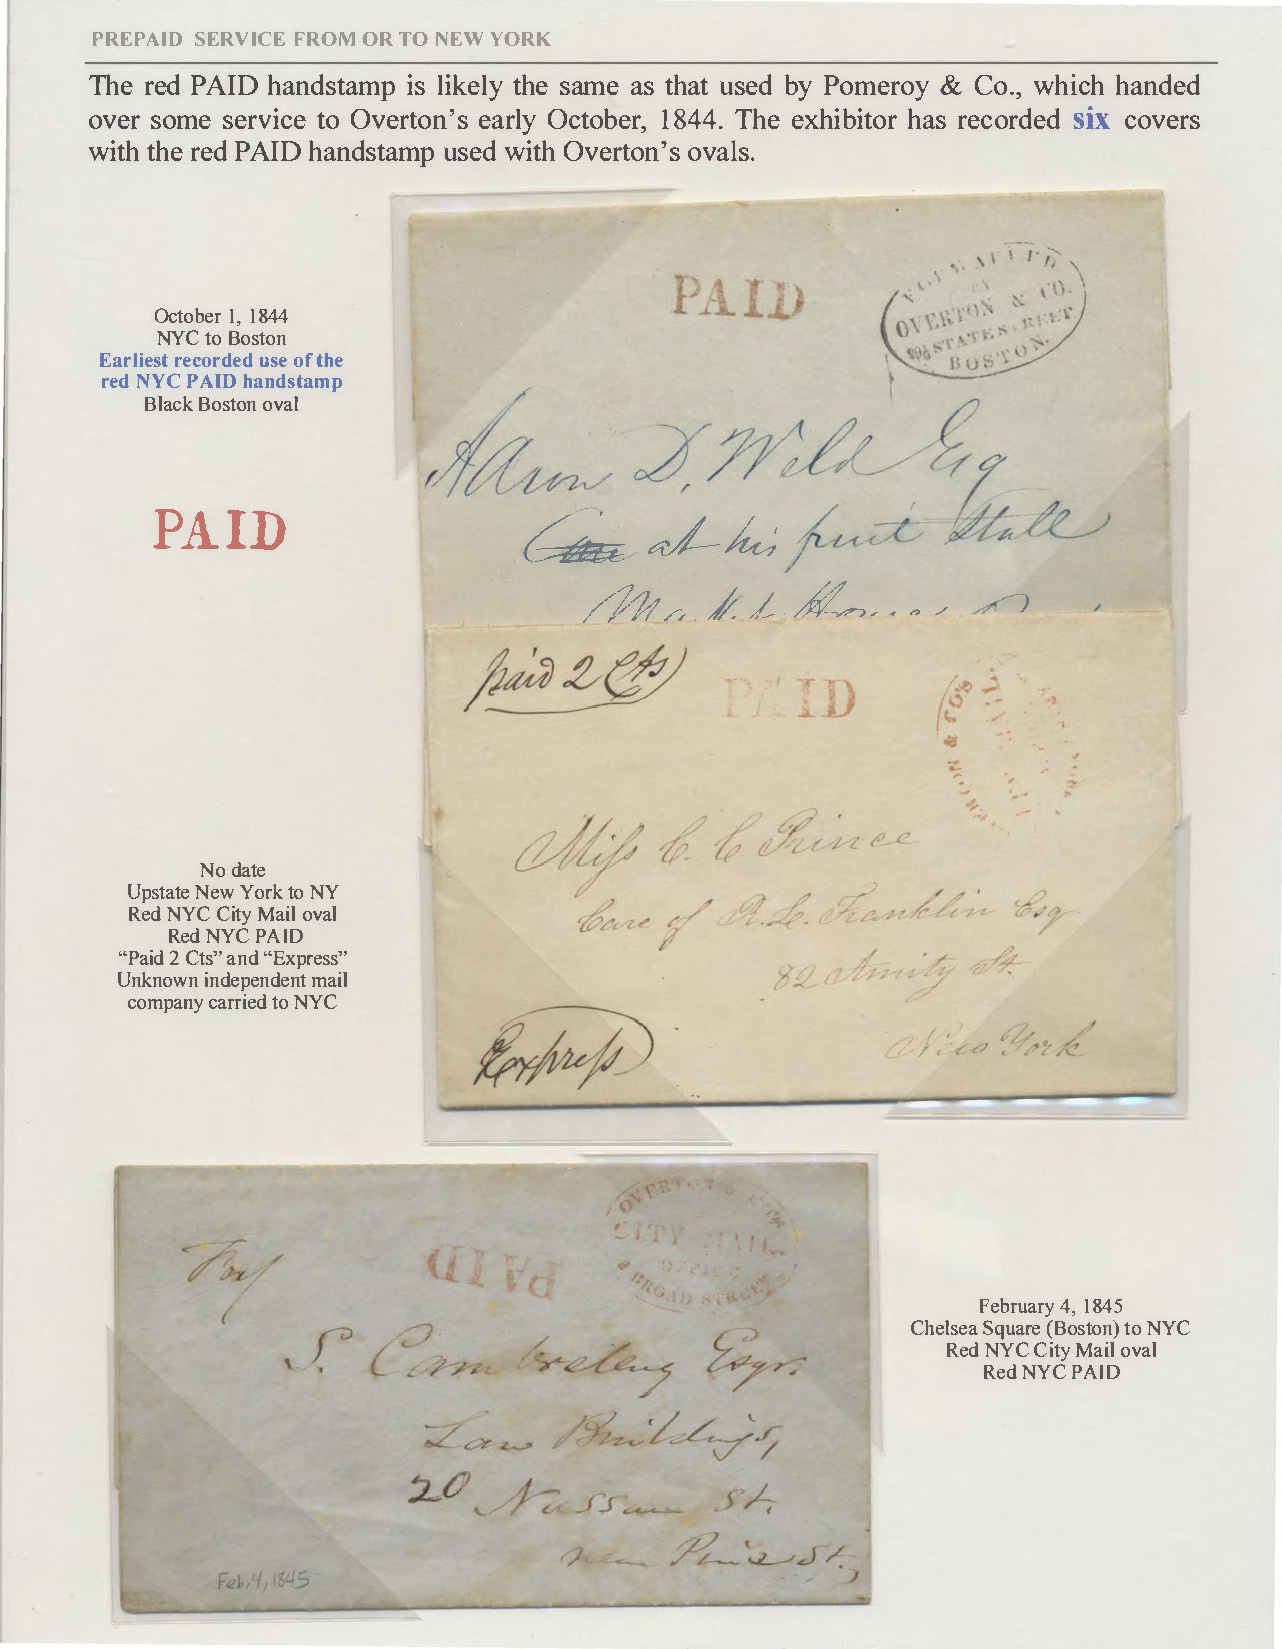 PREPAID SERVICE FROM OR TO NEW YORK
The red PAID handstamp is likely the same as that used by Pomeroy & Co., which handed
over some service to Overton's early October, 1844. The exhibitor has recorded six covers
with the red PAID handstamp used with Overton's ovals.
October 1, 1844
NYC to Boston
Earliest recorded use of the
red NYC PAID handstamp
Black Boston oval
PAID
PAID
FORWARDED
BY
OVERTON & CO.
STATE STREET
BOSTON.
Aaron D. Weld Esq
at his fruit Stall
Market House
No date
Upstate New York to NY
Red NYC City Mail oval
Red NYC PAID
“Paid 2 Cts” and “Express”
Unknown independent mail
company carried to NYC
paid 2 Cts
PAID
& CO'S
Miss C. C. Prince
Care of R. L. Franklin Esq
82 Amity St.
New York
Express
OVERTON & CO'S
CITY MAIL
OFFICE
BROAD STREET
PAID
S. Cambreleng Esqr.
Law Buildings,
20 Nassau St.
near Pine St.,
Feb. 4, 1845
February 4, 1845
Chelsea Square (Boston) to NYC
Red NYC City Mail oval
Red NYC PAID